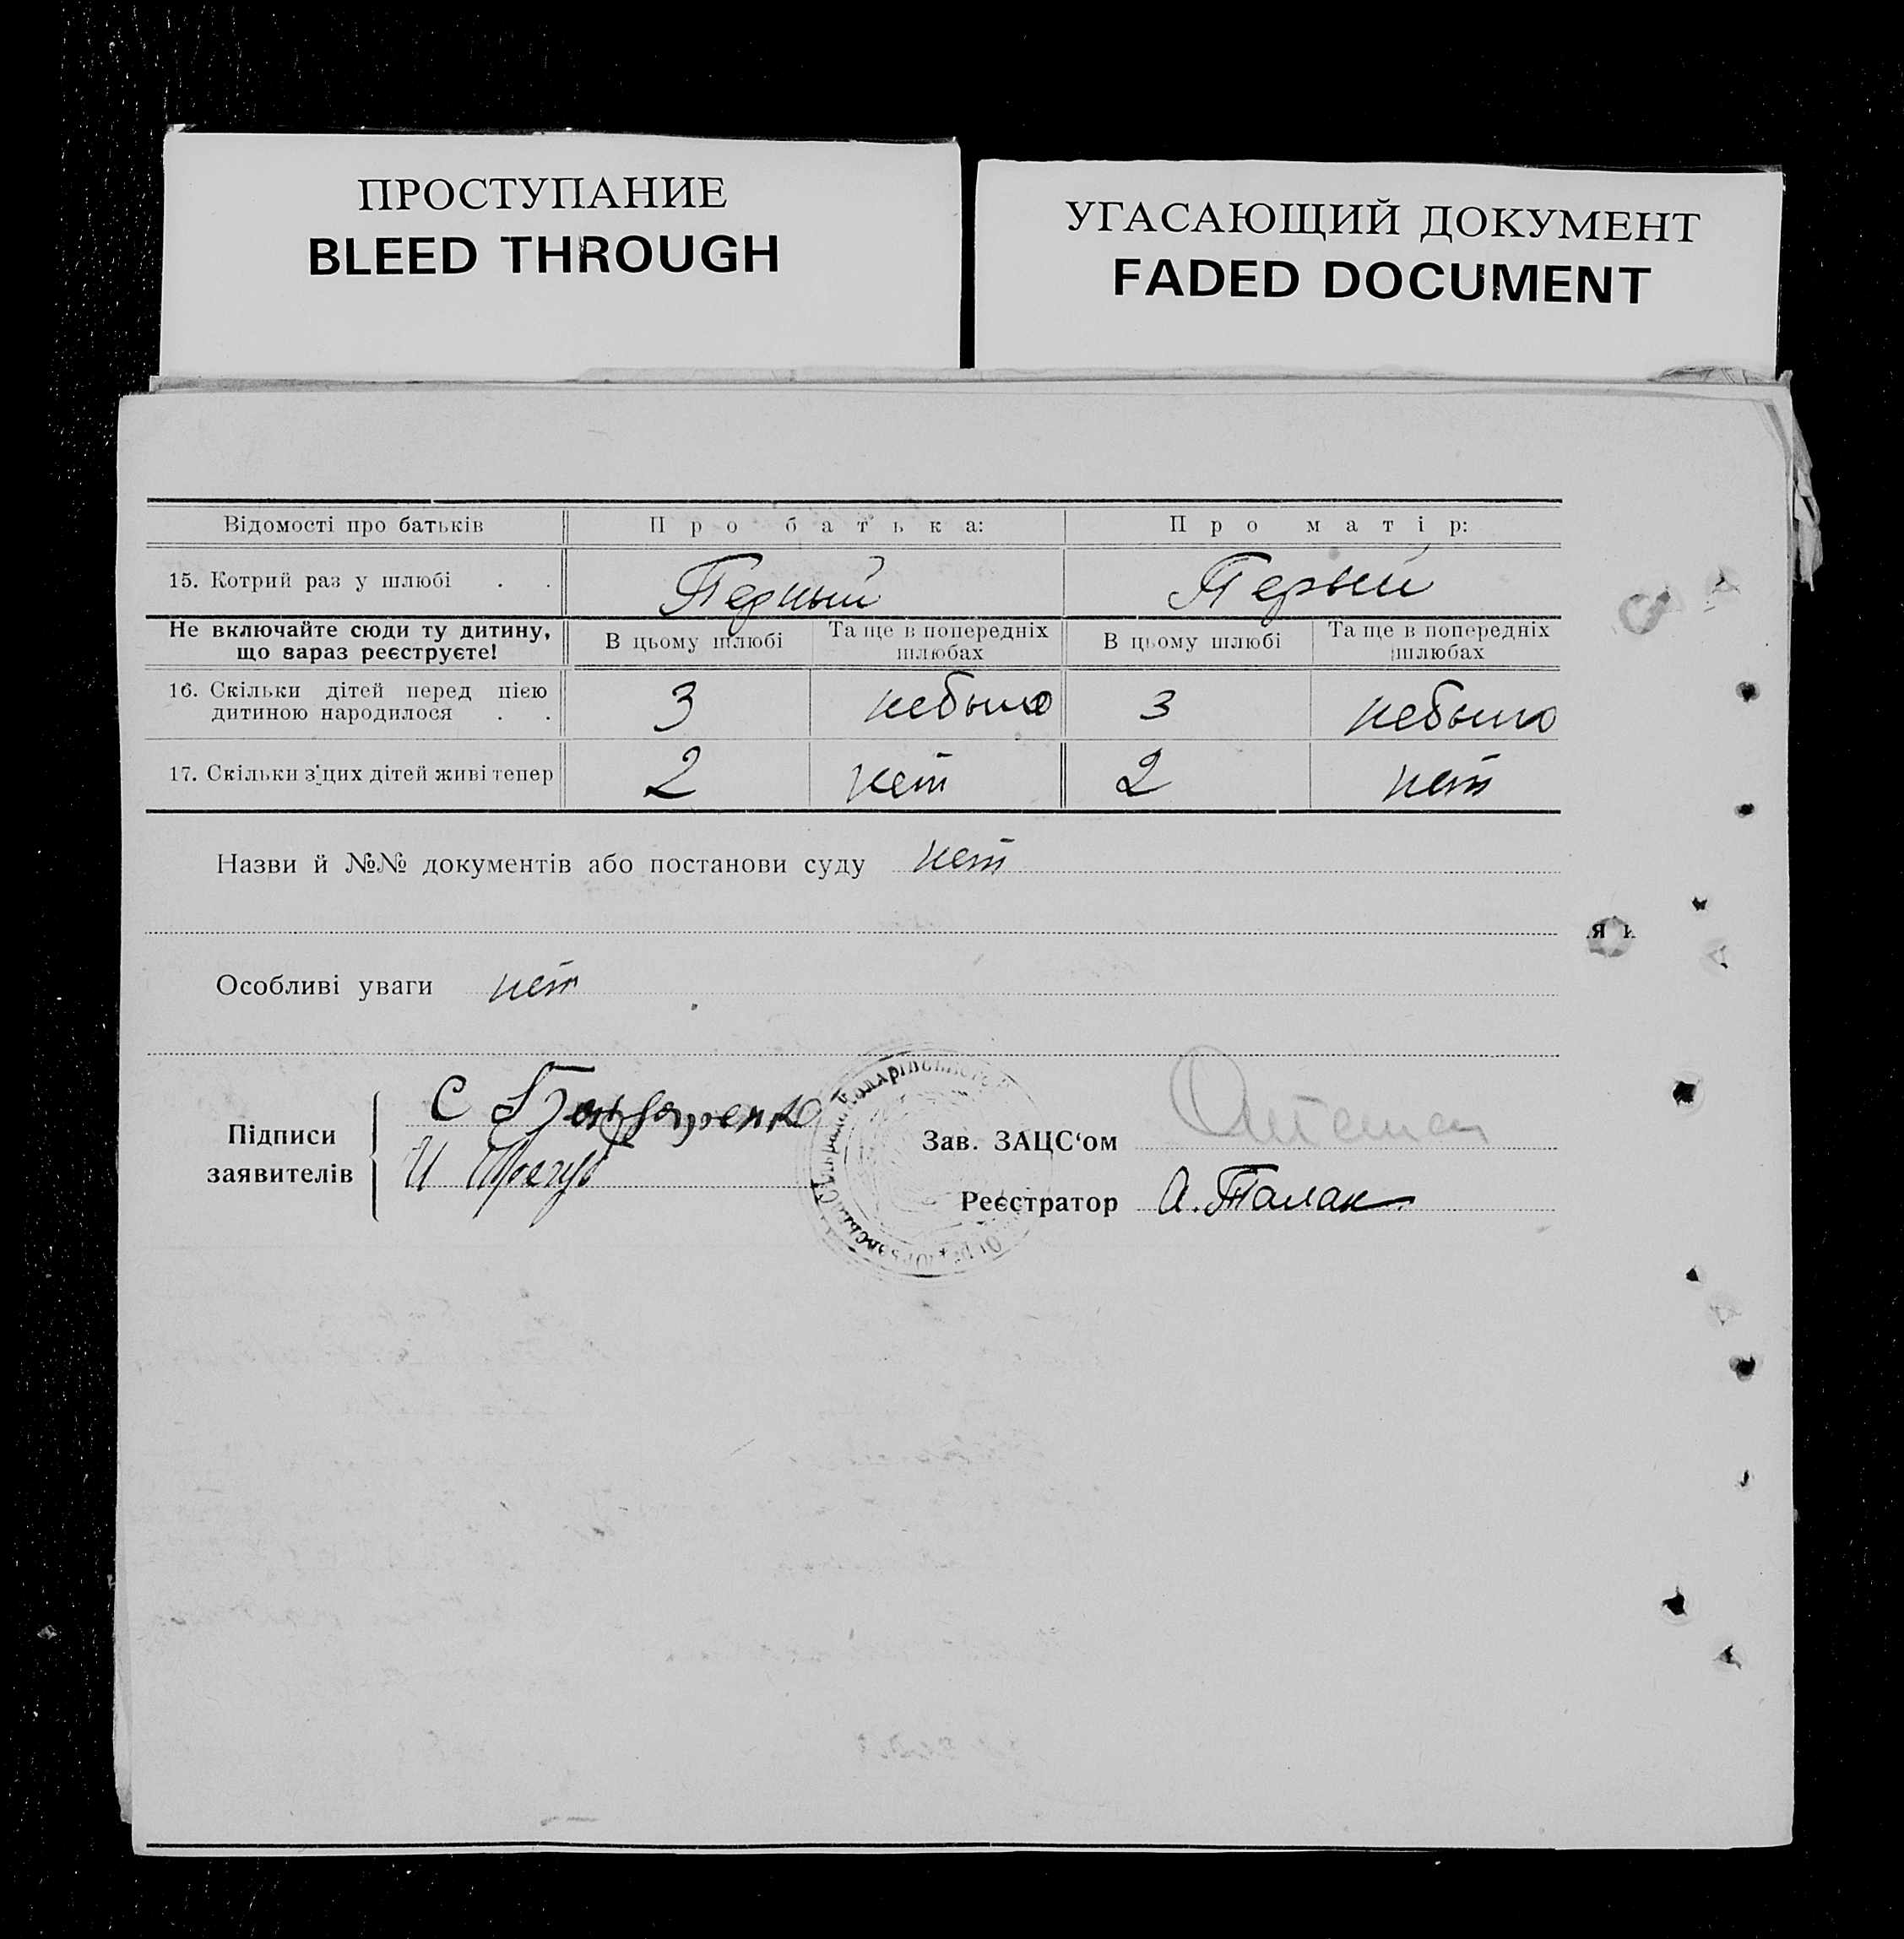 ПРОСТУПАНИЕ
BLEED THROUGH
УГАСАЮЩИЙ ДОКУМЕНТ
FADED DOCUMENT
Відомості про батьків Про батька: Про матір:
15. Котрий раз у шлюбі . . Первый Первый
Не включайте сюди ту дитину, що зараз реєструєте! В цьому шлюбі Та ще в попередніх шлюбах В цьому шлюбі Та ще в попередніх шлюбах
16. Скільки дітей перед цією дитиною народилося . . 3 небыло 3 небыло
17. Скільки з'цих дітей живі тепер 2 нет 2 нет
Назви й №№ документів або постанови суду нет
Особливі уваги нет
Підписи заявителів
С Бондаренко
И
Зав. ЗАЦС'ом
Реєстратор А. Талан